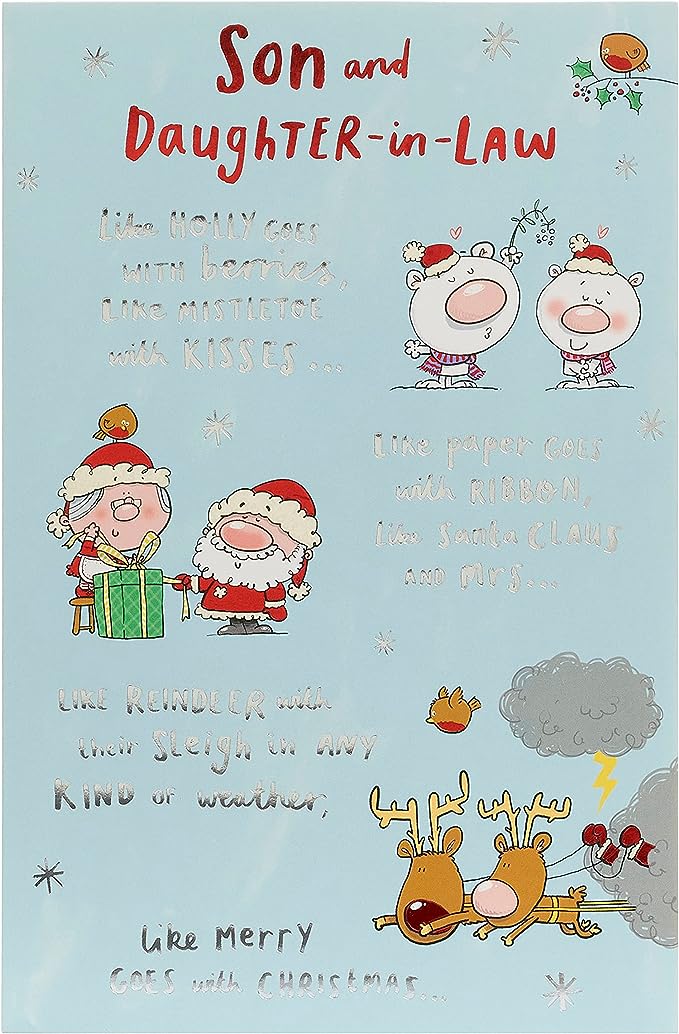 Son and
Daughter-in-Law
Like HOLLY GOES
WITH berries,
LIKE MISTLETOE
with KISSES...
LIKE paper GOES
with RIBBON,
Like Santa CLAUS
AND Mrs...
LIKE REINDEER with
their Sleigh in ANY
KIND of weather,
Like MERRY
GOES with CHRISTMAS...